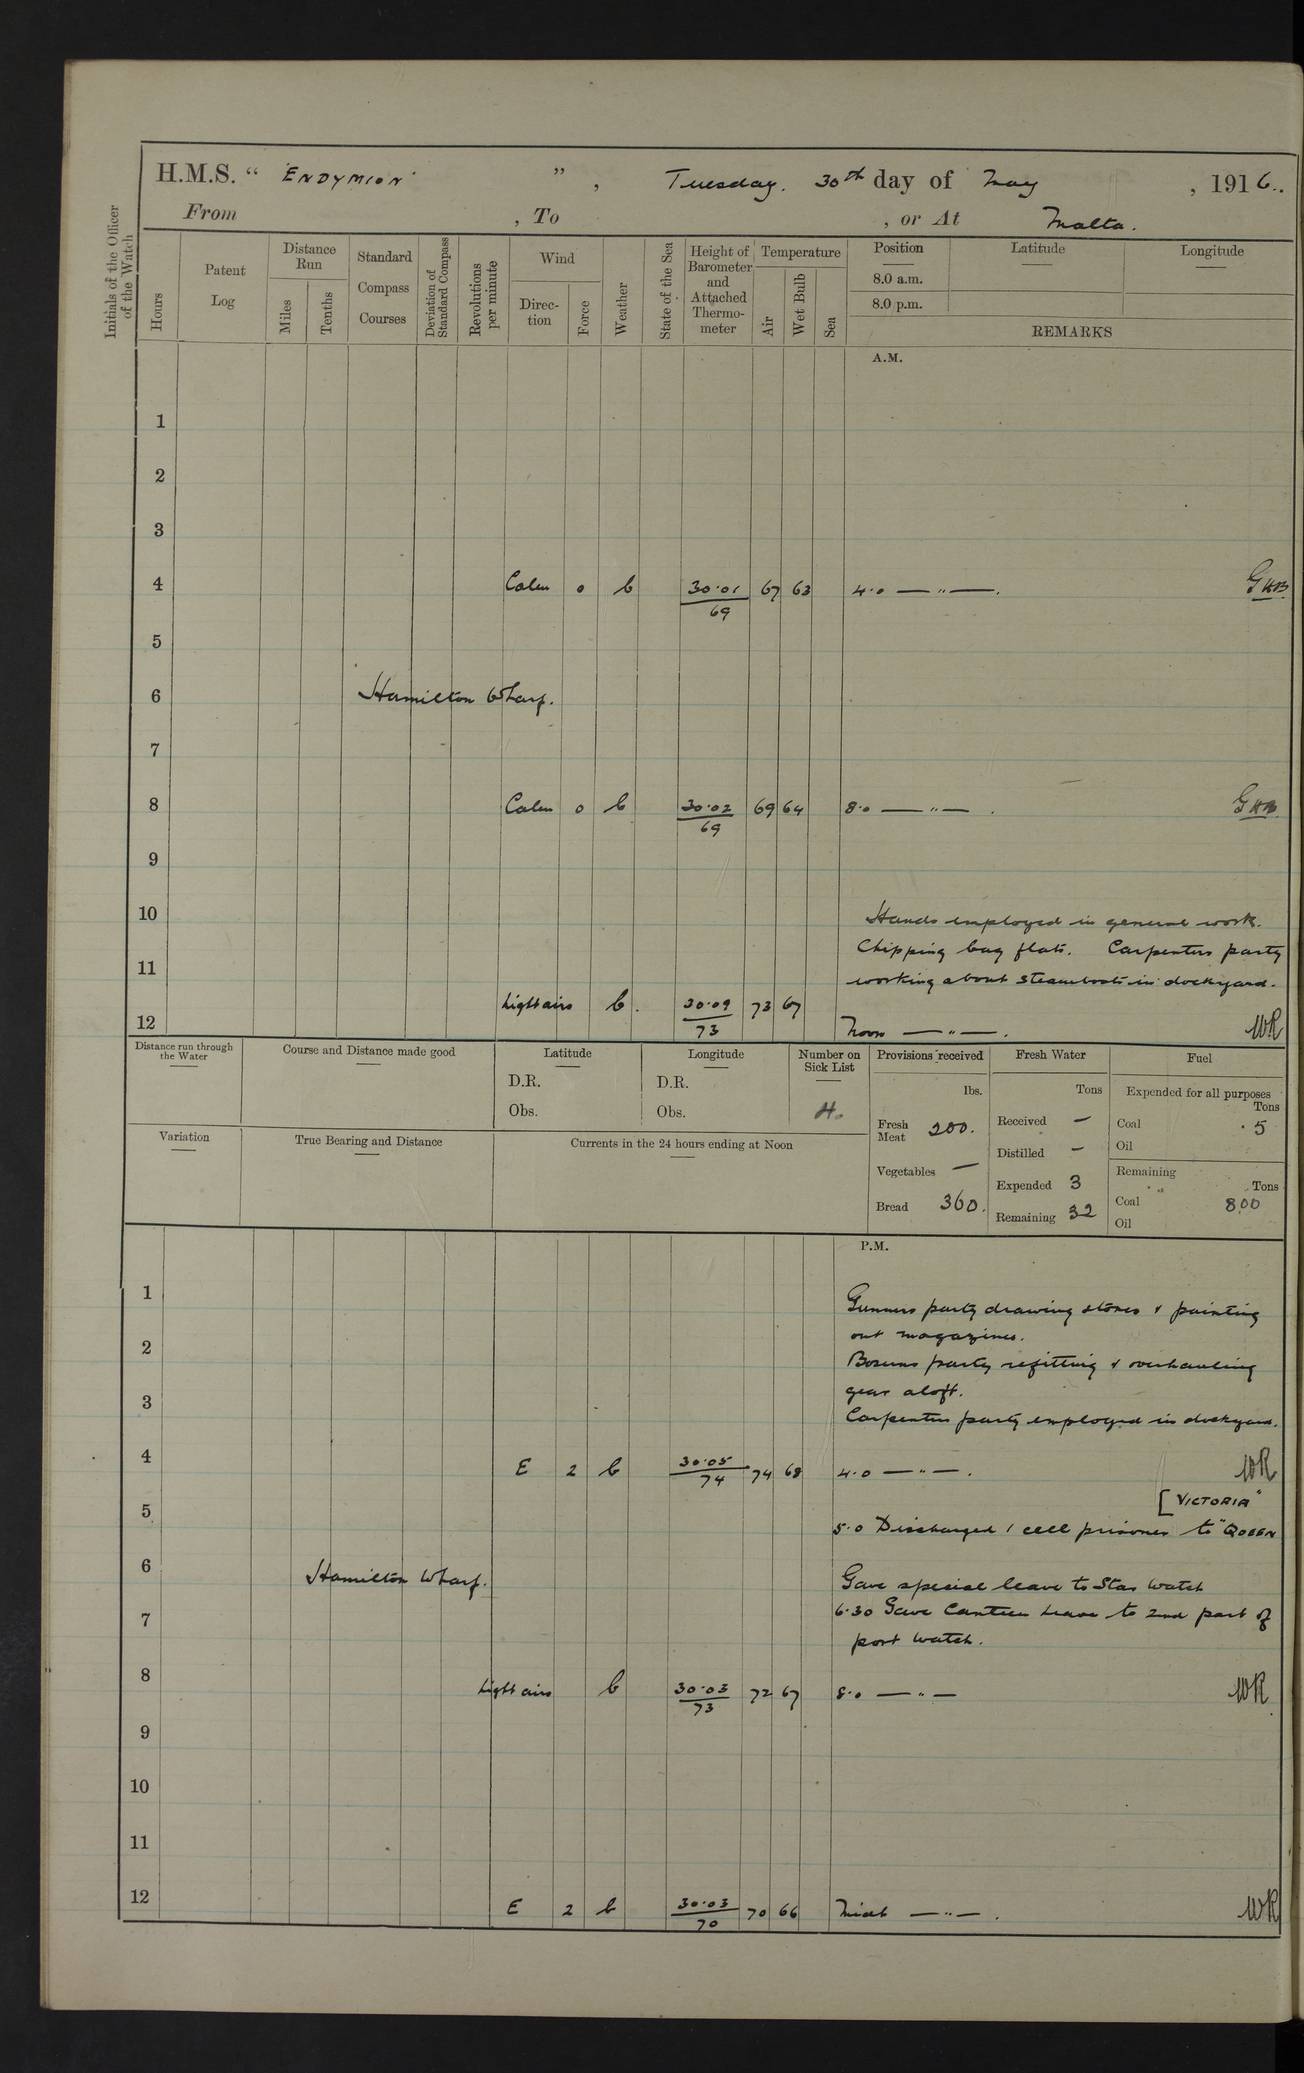 H.M.S. " ENDYMION " , Tuesday. 30th day of May , 1916.
From , To , or At Malta.
Initials of the Officer of the Watch
Hours
Patent Log
Distance Run
Miles
Tenths
Standard Compass Courses
Deviation of Standard Compass
Revolutions per minute
Wind
Direc-tion
Force
Weather
State of the Sea
Height of Barometer and Attached Thermo-meter
Temperature
Air
Wet Bulb
Sea
Position Latitude Longitude
8.0 a.m.
8.0 p.m.
REMARKS
A.M.
1
2
3
4 Calm 0 b 30·01 67 63 4·0 — " — . GHB
69
5
6 Hamilton Wharf.
7
8 Calm 0 b 30·02 69 64 8·0 — " — . GHB
69
9
10 Hands employed in general work.
Chipping bag flats. Carpenters party
11 working about steamboats in dockyard.
Light airs b. 30·09 73 67
12 73 Noon — " — . WR
Distance run through the Water
Course and Distance made good
Latitude
D.R.
Obs.
Longitude
D.R.
Obs.
Number on Sick List
4.
Provisions received
lbs.
Fresh Meat 200.
Vegetables —
Bread 360.
Fresh Water
Tons
Received —
Distilled —
Expended 3
Remaining 32
Fuel
Expended for all purposes
Tons
Coal · 5
Oil
Remaining
Tons
Coal 800
Oil
Variation
True Bearing and Distance
Currents in the 24 hours ending at Noon
P.M.
1 Gunners party drawing stores & painting
out magazines.
2 Bosuns party refitting & overhauling
gear aloft.
3 Carpenters party employed in dockyard.
4 E 2 b 30·05 74 68 4·0 — " — . WR
74
[ VICTORIA"
5 5·0 Discharged 1 cell prisoner to "QUEEN
6 Hamilton Wharf. Gave special leave to Star Watch
7 6·30 Gave Canteen Leave to 2nd part of
port watch.
8 Light airs b 30·03 72 67 8·0 — " — WR
73
9
10
11
12 E 2 b 30·03 70 66 Midt — " — . WR
70